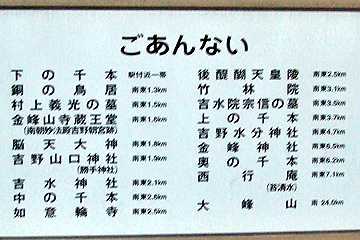 ごあんない
下の千本 駅付近一帯
銅の鳥居 南東1.3km
村上義光の墓 南東1.5km
金峰山寺蔵王堂 南東1.6km
(南朝妙法殿吉野朝宮跡)
脳天大神 南東1.8km
吉野山口神社 南東1.9km
(勝手神社)
吉水神社 南東2.1km
中の千本 南東2.6km
如意輪寺 南東2.5km
後醍醐天皇陵 南東2.5km
竹林院 南東3.1km
吉水院宗信の墓 南東3.5km
上の千本 南東3.7km
吉野水分神社 南東4.7km
金峰神社 南東6.5km
奥の千本 南東6.2km
西行庵 南東7.1km
(苔清水)
大峰山 南 24.0km